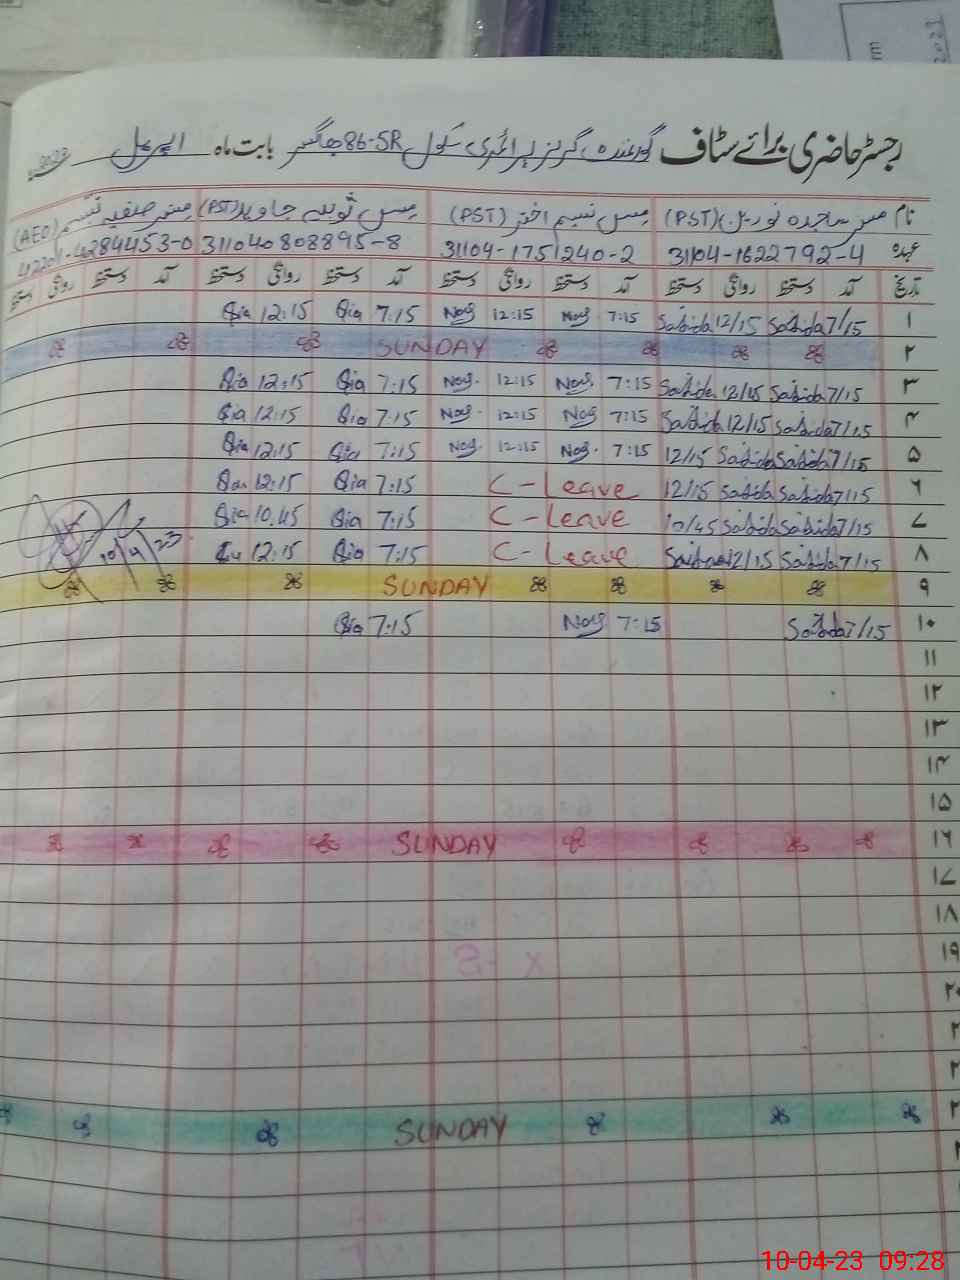 رجسٹر حاضری برائے سٹاف گورنمنٹ گرلز پرائمری سکول 86-5R بابت ماہ اپریل 2023
نام مس ساجدہ نورین (PST) مس نسیم اختر (PST) مس ثوبیہ جاوید (PST) مسز صفیہ تبسم (AEO)
عہدہ 31104-1622792-4 31104-1751240-2 311040808895-8 42201-4284453-0
تاریخ آمد دستخط روانگی دستخط آمد دستخط روانگی دستخط آمد دستخط روانگی دستخط آمد دستخط روانگی دستخط
۱ 7/15 Sajida 12/15 Sajida 7:15 Nas 12:15 Nas 7:15 Bia 12:15 Bia
۲ SUNDAY
۳ 7/15 Sajida 12/15 Sajida 7:15 Nas 12:15 Nas 7:15 Bia 12:15 Bia
۴ 7/15 Sajida 12/15 Sajida 7:15 Nas 12:15 Nas 7:15 Bia 12:15 Bia
۵ 7/15 Sajida Sajida 12/15 7:15 Nas 12:15 Nas 7:15 Bia 12:15 Bia
۶ 7/15 Sajida Sajida 12/15 C-Leave 7:15 Bia 12:15 Bia
۷ 7/15 Sajida Sajida 10/45 C-Leave 7:15 Bia 10.45 Bia
۸ 7/15 Sajida 12/15 Sajida C-Leave 7:15 Bia 12:15 10/4/23
۹ SUNDAY
۱۰ 7/15 Sajida 7:15 Nas 7:15 Bia
۱۱
۱۲
۱۳
۱۴
۱۵
۱۶ SUNDAY
۱۷
۱۸
۱۹
۲۰
۲
۲
۲ SUNDAY
10-04-23 09:28